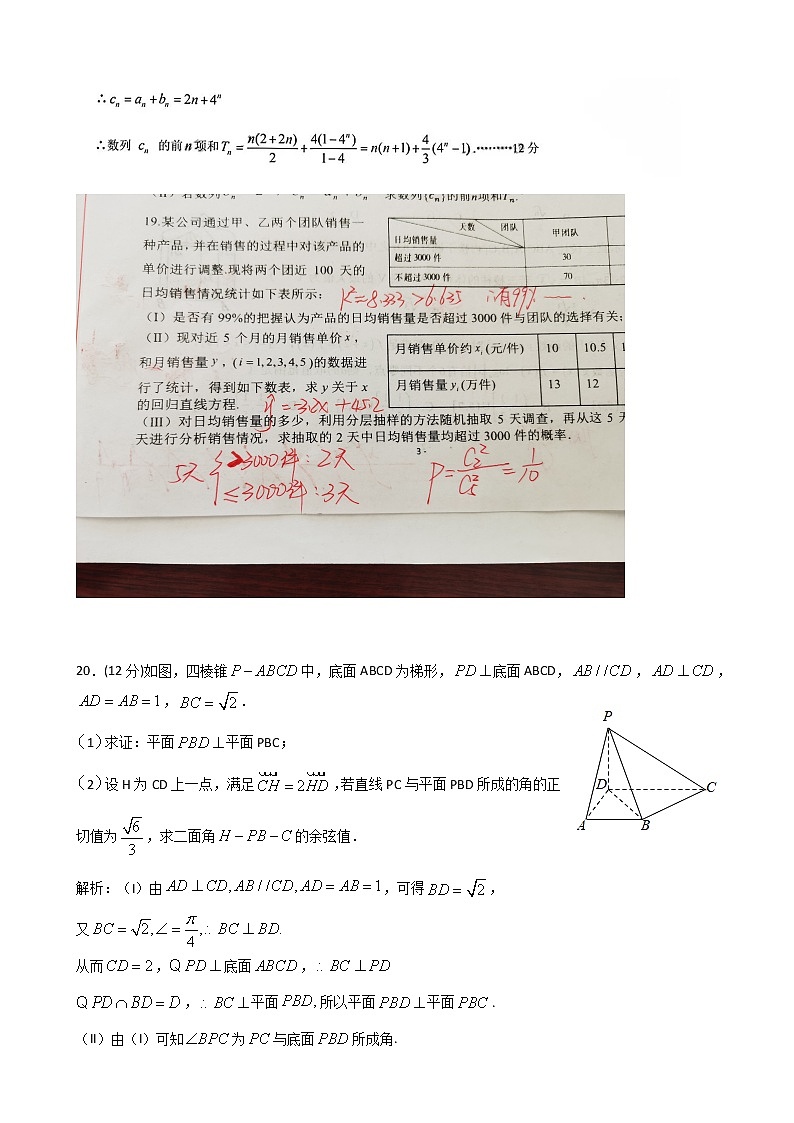 ∴ cₙ = aₙ + bₙ = 2n + 4ⁿ
∴数列 cₙ 的前n项和Tₙ = n(2+2n)/2 + 4(1−4ⁿ)/(1−4) = n(n+1) + 4/3(4ⁿ−1).⋯⋯⋯12分
求数列{cₙ}的前n项和Tₙ.
19.某公司通过甲、乙两个团队销售一
种产品,并在销售的过程中对该产品的
单价进行调整.现将两个团近 100 天的
日均销售情况统计如下表所示:
天数 团队 日均销售量 甲团队
超过3000件 30
不超过3000件 70
K²=8.333>6.635 ∴有99% ⋯⋯.
(I)是否有99%的把握认为产品的日均销售量是否超过3000件与团队的选择有关;
(II)现对近 5 个月的月销售单价 x,
和月销售量 y,(i=1,2,3,4,5)的数据进
行了统计,得到如下数表,求 y 关于 x
的回归直线方程.
月销售单价约 xᵢ(元/件) 10 10.5
月销售量 yᵢ(万件) 13 12
ŷ=-3.2x+45.2
(III)对日均销售量的多少,利用分层抽样的方法随机抽取 5 天调查,再从这 5 天
天进行分析销售情况,求抽取的 2 天中日均销售量均超过 3000 件的概率.
3·
5天{ >3000件:2天
≤3000件:3天
P=C₂²/C₅²=1/10
20.(12分)如图,四棱锥P−ABCD中,底面ABCD为梯形,PD⊥底面ABCD,AB//CD,AD⊥CD,
AD=AB=1,BC=√2.
(1)求证:平面PBD⊥平面PBC;
(2)设H为CD上一点,满足CH=2HD,若直线PC与平面PBD所成的角的正
切值为√6/3,求二面角H−PB−C的余弦值.
P
D
C
A
B
解析:(I)由AD⊥CD,AB//CD,AD=AB=1,可得BD=√2,
又BC=√2,∠=π/4,∴BC⊥BD.
从而CD=2,Q PD⊥底面ABCD,∴BC⊥PD
Q PD∩BD=D,∴BC⊥平面PBD,所以平面PBD⊥平面PBC.
(II)由(I)可知∠BPC为PC与底面PBD所成角.